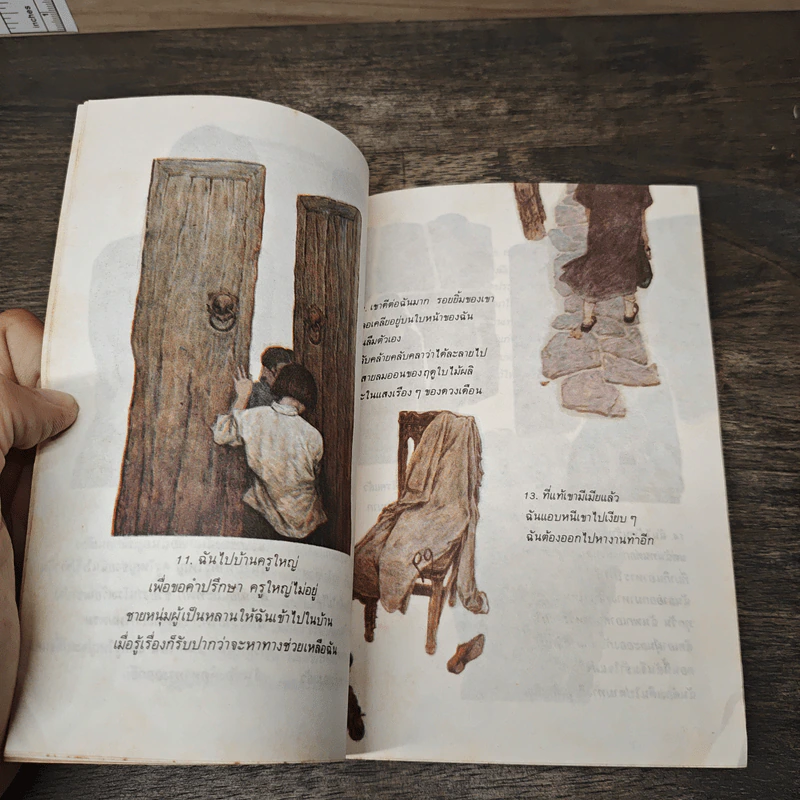 inches
1
11. ฉันไปบ้านครูใหญ่
เพื่อขอคำปรึกษา ครูใหญ่ไม่อยู่
ชายหนุ่มผู้เป็นหลานให้ฉันเข้าไปในบ้าน
เมื่อรู้เรื่องก็รับปากว่าจะหาทางช่วยเหลือฉัน
เขาดีต่อฉันมาก รอยยิ้มของเขา
อเคลียอยู่บนใบหน้าของฉัน
ลืมตัวเอง
คล้ายคลับคลาว่าได้ละลายไป
สายลมอ่อนของฤดูใบไม้ผลิ
ในแสงเรือง ๆ ของดวงเดือน
13. ที่แท้เขามีเมียแล้ว
ฉันแอบหนีเขาไปเงียบ ๆ
ฉันต้องออกไปหางานทำอีก